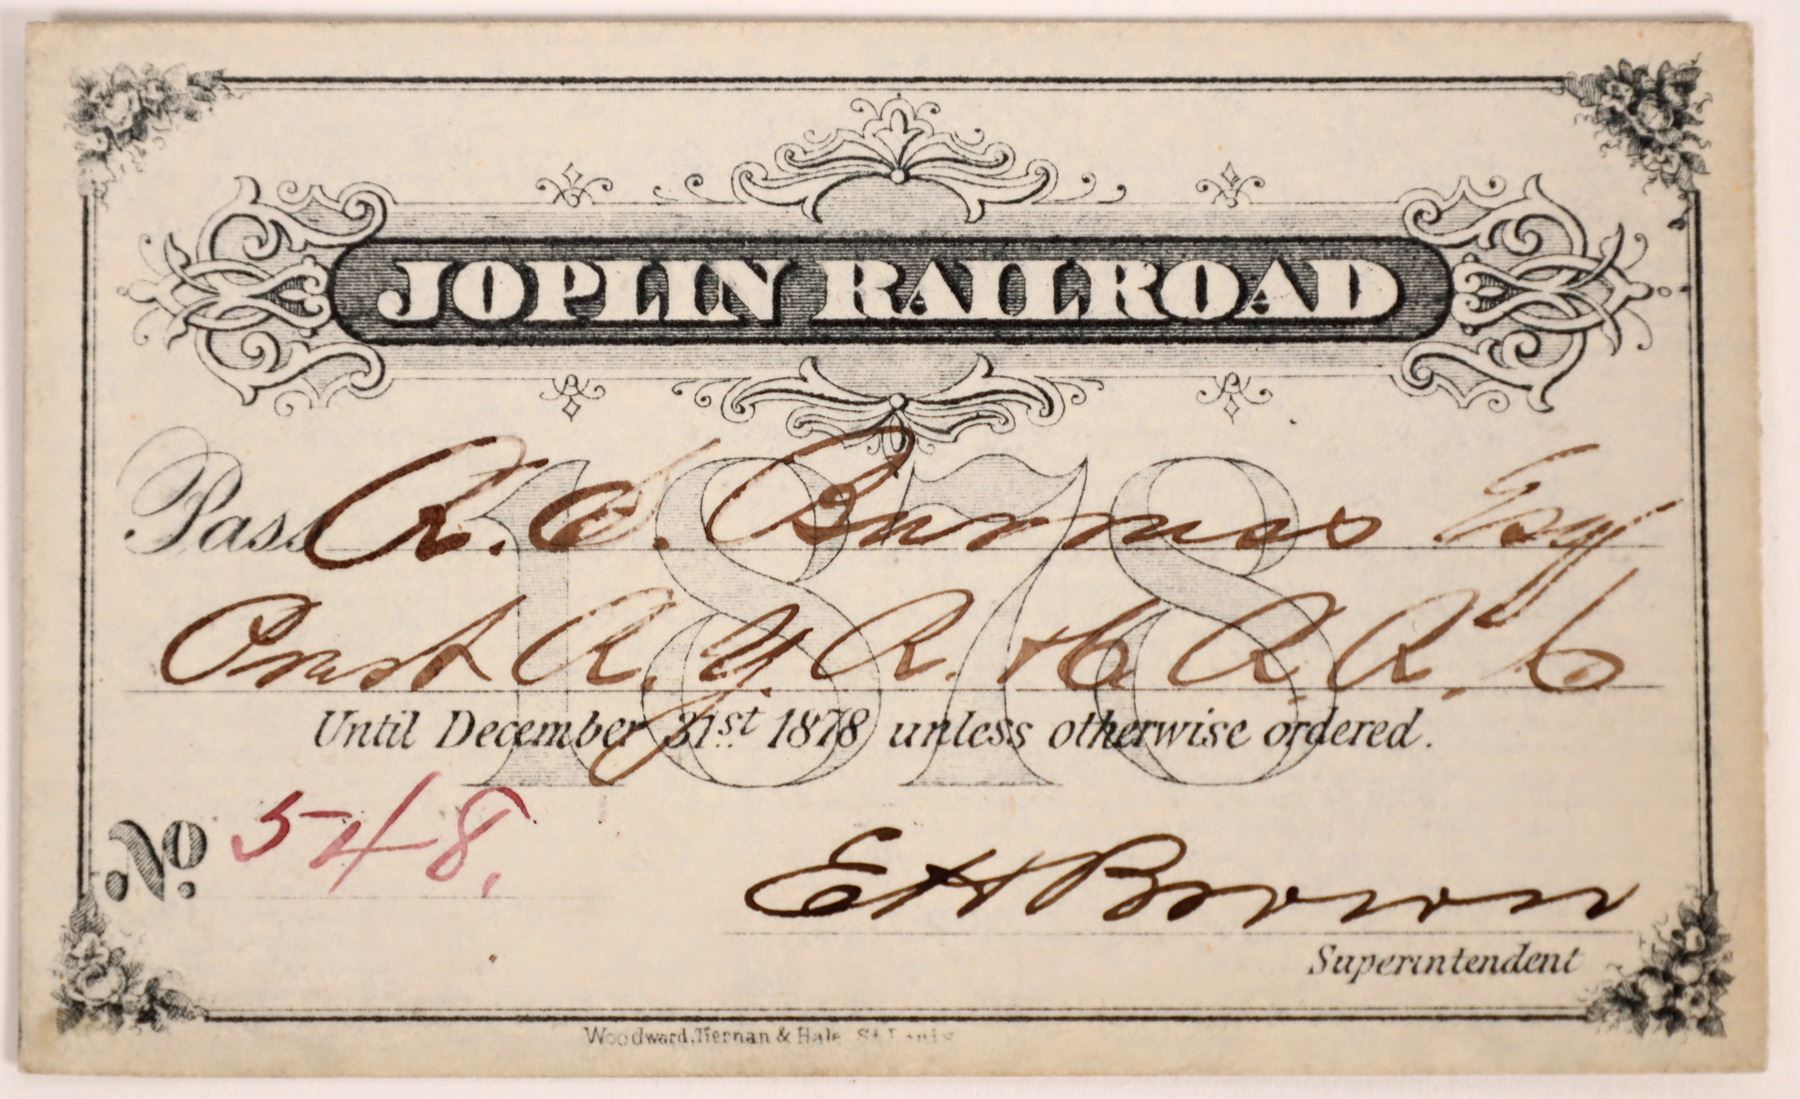 JOPLIN RAILROAD
1878
Pass R. S. Burness Esq
Prest R. Y. R. & C. R. R. Co
Until December 31st 1878 unless otherwise ordered.
No. 548.
E H Brown
Superintendent
Woodward, Tiernan & Hale, St. Louis